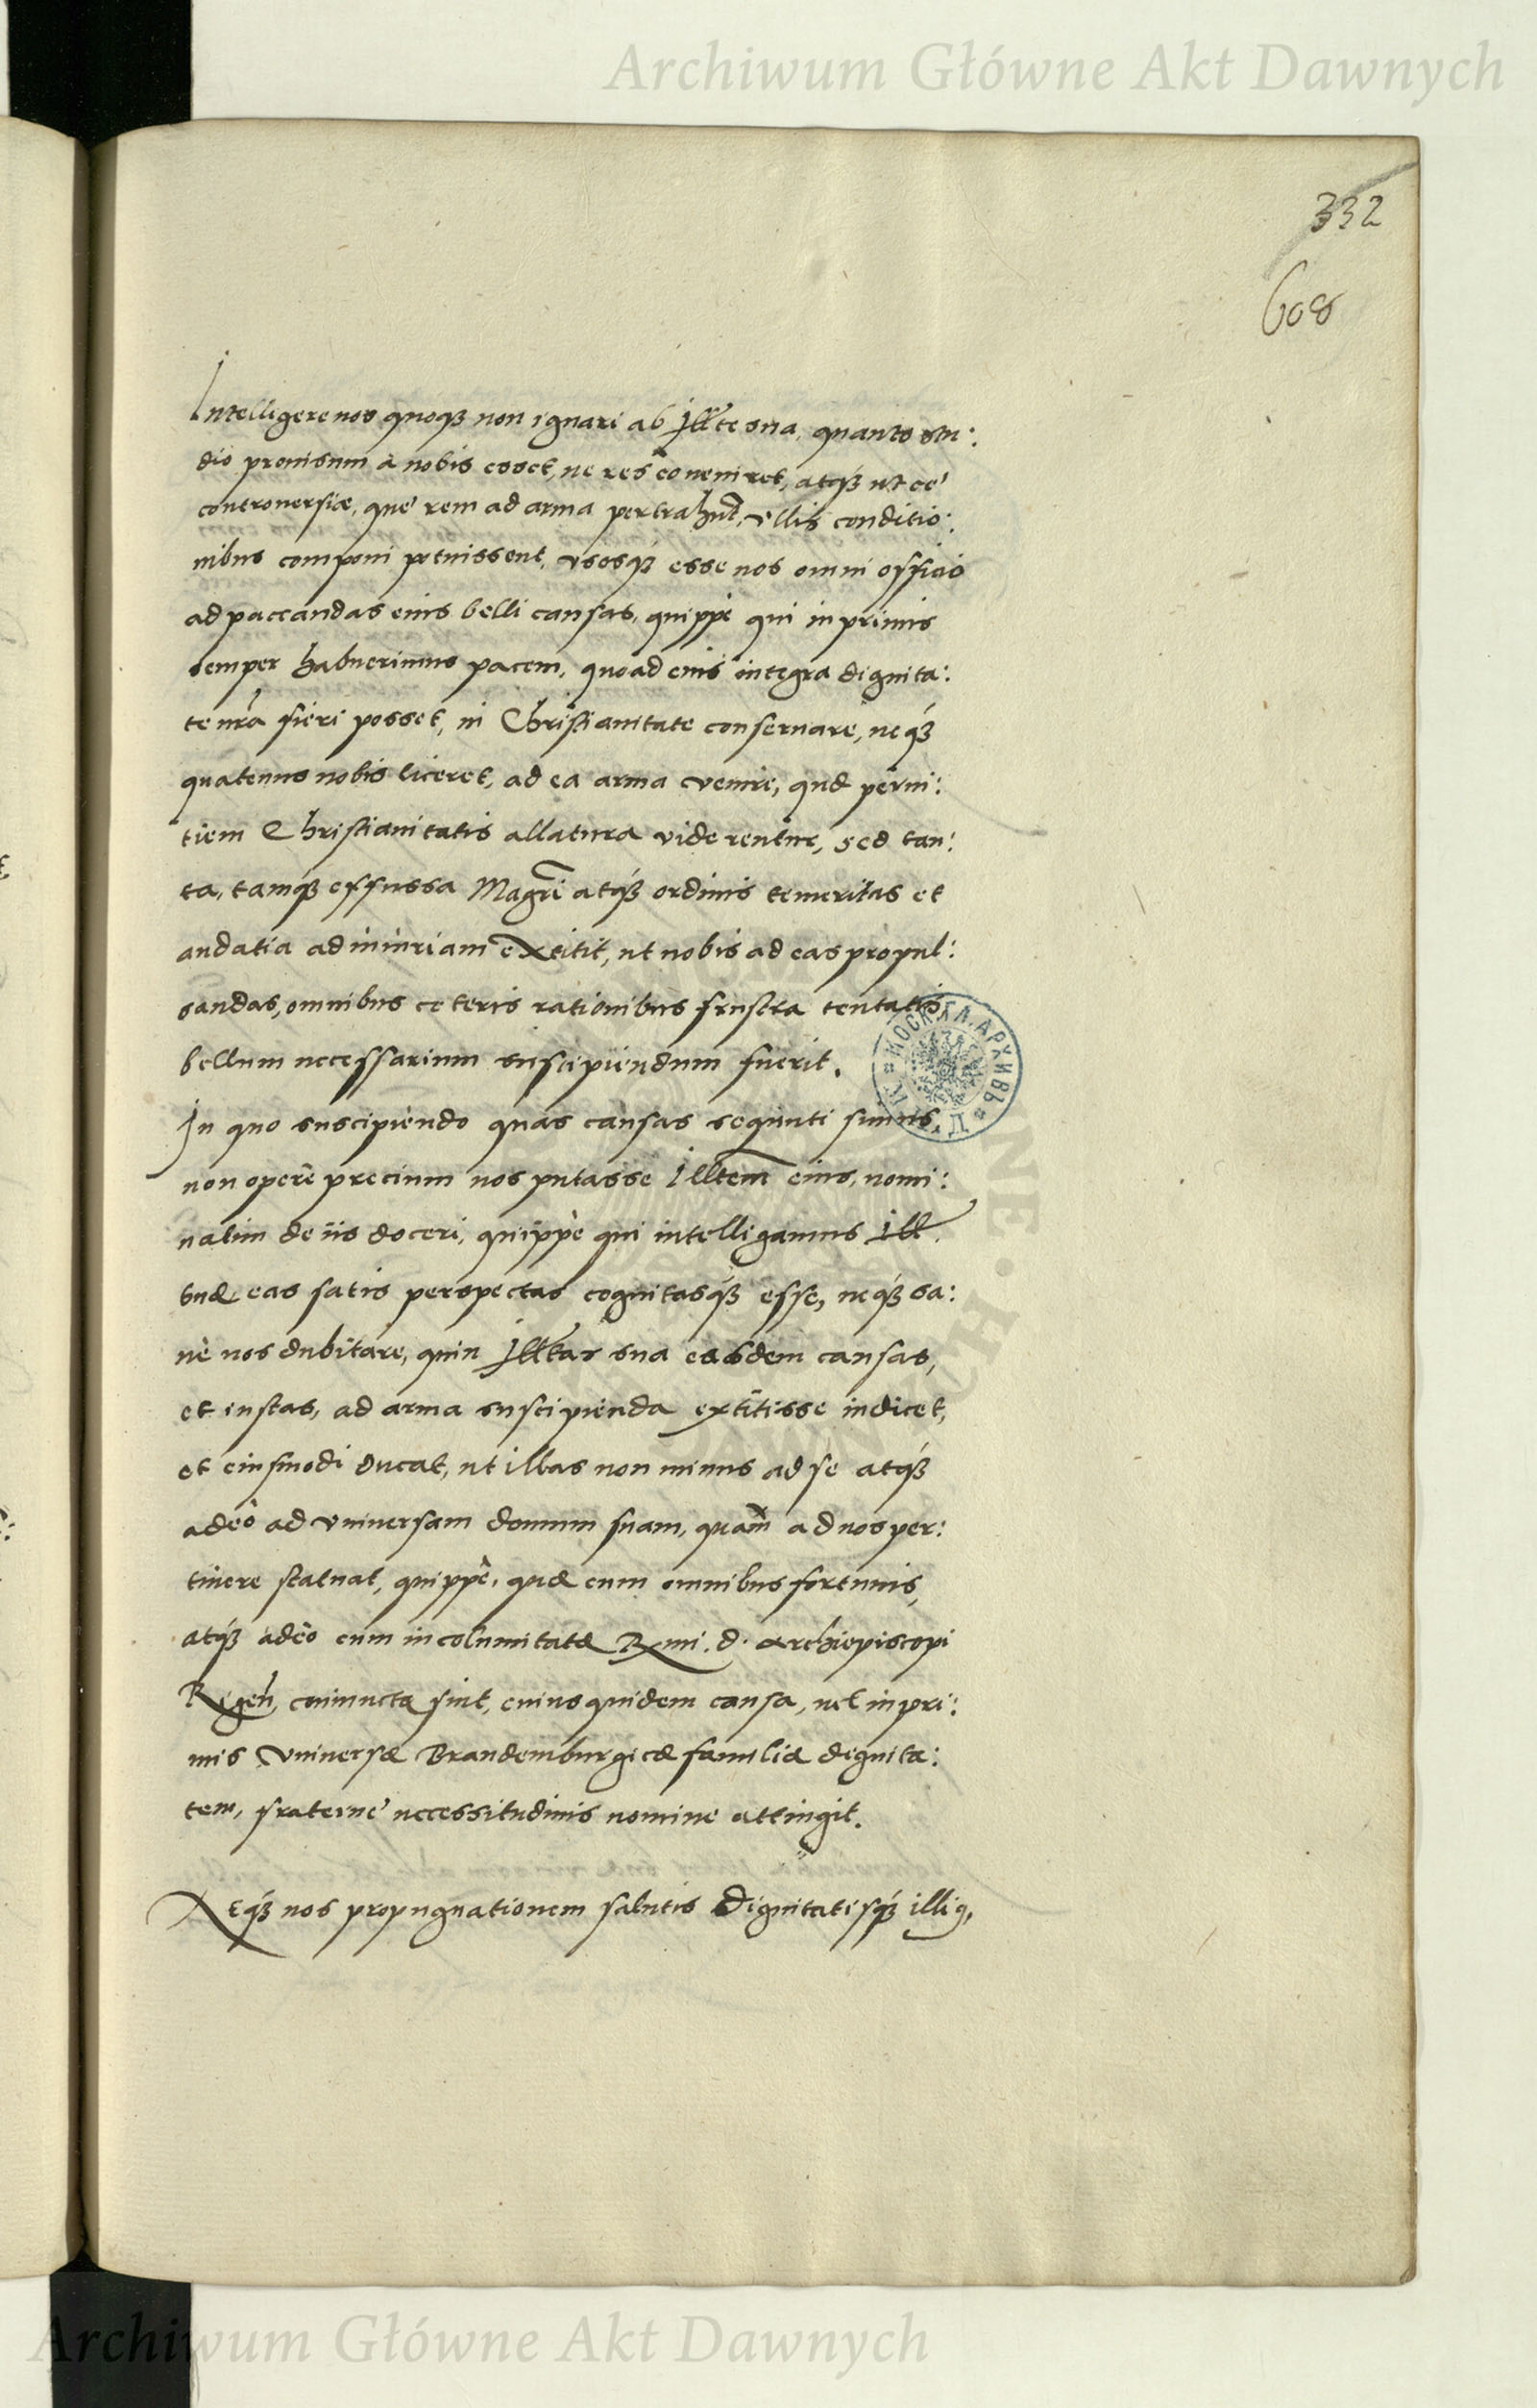 Archiwum Główne Akt Dawnych
332
608
Intelligere nos quoqȝ non ignari ab Illte sua, quanto stu:
dio prouisum à nobis esset, ne res eò veniret, atqȝ ut eę
controuersiæ, quę rem ad arma pertrahunt, vllis conditio:
nibus componi potuissent, vsosqȝ esse nos omni officio
ad paccandas eius belli causas, quippè qui in primis
semper habuerimus pacem, quoad eius integra dignita:
te nrã fieri posset, in Christianitate conseruare, neqȝ
quatenus nobis liceret, ad ea arma venire, quæ perni:
tiem Christianitatis allatura viderentur, sed tan:
ta, tamqȝ effussa Magri atqȝ ordinis temeritas et
audatia ad iniuriam extitit, ut nobis ad eas propul:
sandas, omnibus ceteris rationibus frustra tentatis,
bellum necessarium suscipiendum fuerit.
In quo suscipiendo quas causas sequuti simus,
non operę precium nos putasse Illtem eius, nomi:
natim de iis doceri, quippè qui intelligamus Ill.
suæ eas satis perspectas cognitasqȝ esse, neqȝ sa:
nè nos dubitare, quin Illtas sua easdem causas,
et iustas, ad arma suscipienda extitisse iudicet,
et eiusmodi ducat, ut illas non minus ad se atqȝ
adeò ad vniuersam domum suam, quam ad nos per:
tinere statuat, quippè, quæ cum omnibus fortunis,
atqȝ adeò cum incolumitate Rmi. d. Archiepiscopi
Rigeñ, coniuncta sint, cuius quidem causa, uel in pri:
mis vniuersæ Brandemburgicæ familiæ dignita:
tem, fraternę necessitudinis nomine attingit.
Atqȝ nos propugnationem salutis dignitatisqȝ illiꝰ,
Archiwum Główne Akt Dawnych